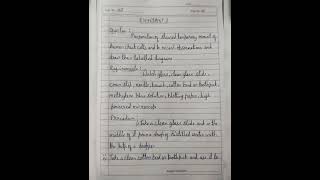 Experiment 2
Question :
Preparation of stained temporary mount of
human cheek cells and to record observations and
draw their labelled diagrams.
Requirements :
Watch glass, clean glass slide,
cover slip, needle, brush, cotton bud or toothpick,
methylene blue solution, blotting paper,
microscope
Procedure :
i) Take a clean glass slide and in the
middle of it pour a drop of distilled water with
the help of a dropper.
ii) Take a clean cotton bud or toothpick and use it to